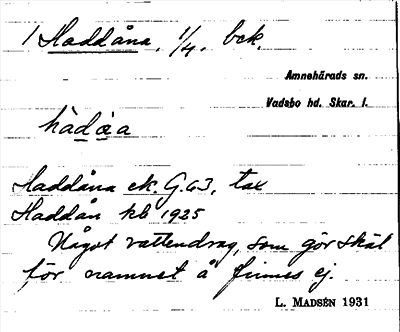 1 Haddåna, 1/4, bck.
Amnehärads sn.
Vadsbo hd. Skar. l.
Haddåna ek. G. 63, tax
Haddån kb 1925
Något vattendrag, som gör skäl
för namnet å finnes ej.
L. MADSÉN 1931